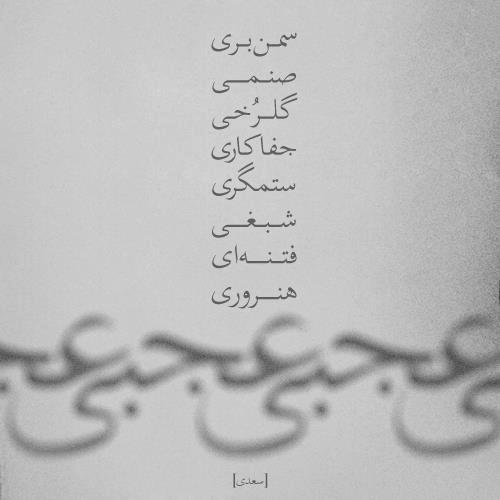 سمن‌بری
صنمی
گلرُخی
جفاکاری
ستمگری
شبغی
فتنه‌ای
هنروری
عجبی عجبی عجبی
[سعدی]